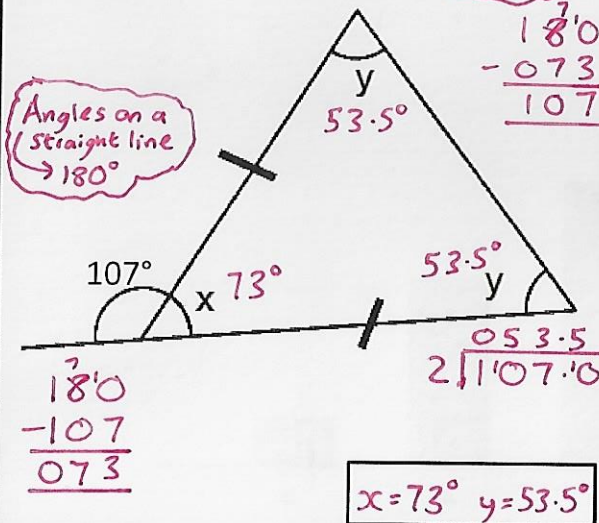 180
- 073
107
y
53.5°
Angles on a
straight line
→ 180°
107°
x 73°
53.5°
y
053.5
2 1'07.'0
7
18'0
-107
073
x = 73° y = 53.5°